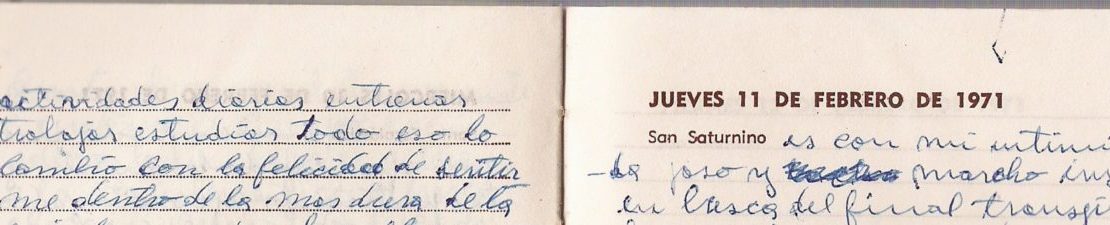 actividades diarias entrenar
trabajar estudiar todo eso lo
cambio con la felicidad de sentir
me dentro de la mas dura de la
JUEVES 11 DE FEBRERO DE 1971
San Saturnino es con mi intimi
-da y marcho ins
en busca del final